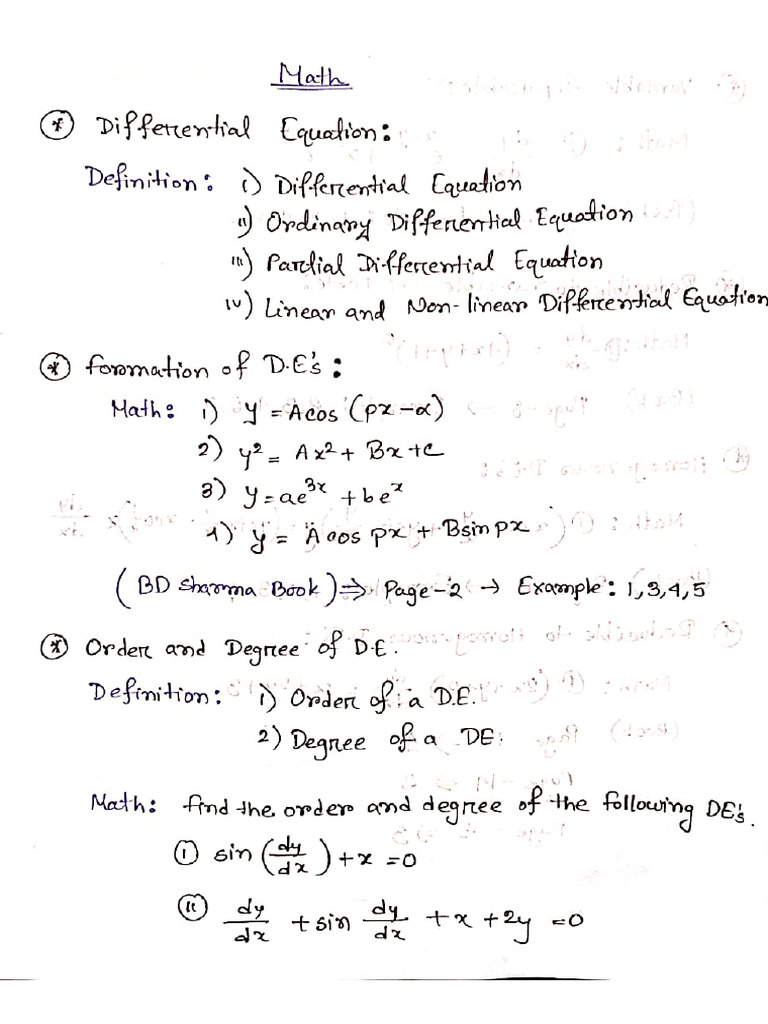 Math
* Differential Equation:
Definition: i) Differential Equation
ii) Ordinary Differential Equation
iii) Partial Differential Equation
iv) Linear and Non-linear Differential Equation
* Formation of D.E's:
Math: 1) y = A cos (px - α)
2) y² = Ax² + Bx + C
3) y = ae³ˣ + beˣ
4) y = A cos px + B sin px
(BD Sharma Book) ⇒ Page-2 → Example: 1,3,4,5
* Order and Degree of D.E.
Definition: 1) Order of a D.E.
2) Degree of a DE.
Math: find the order and degree of the following DE's.
(i) sin (dy/dx) + x = 0
(ii) dy/dx + sin dy/dx + x + 2y = 0